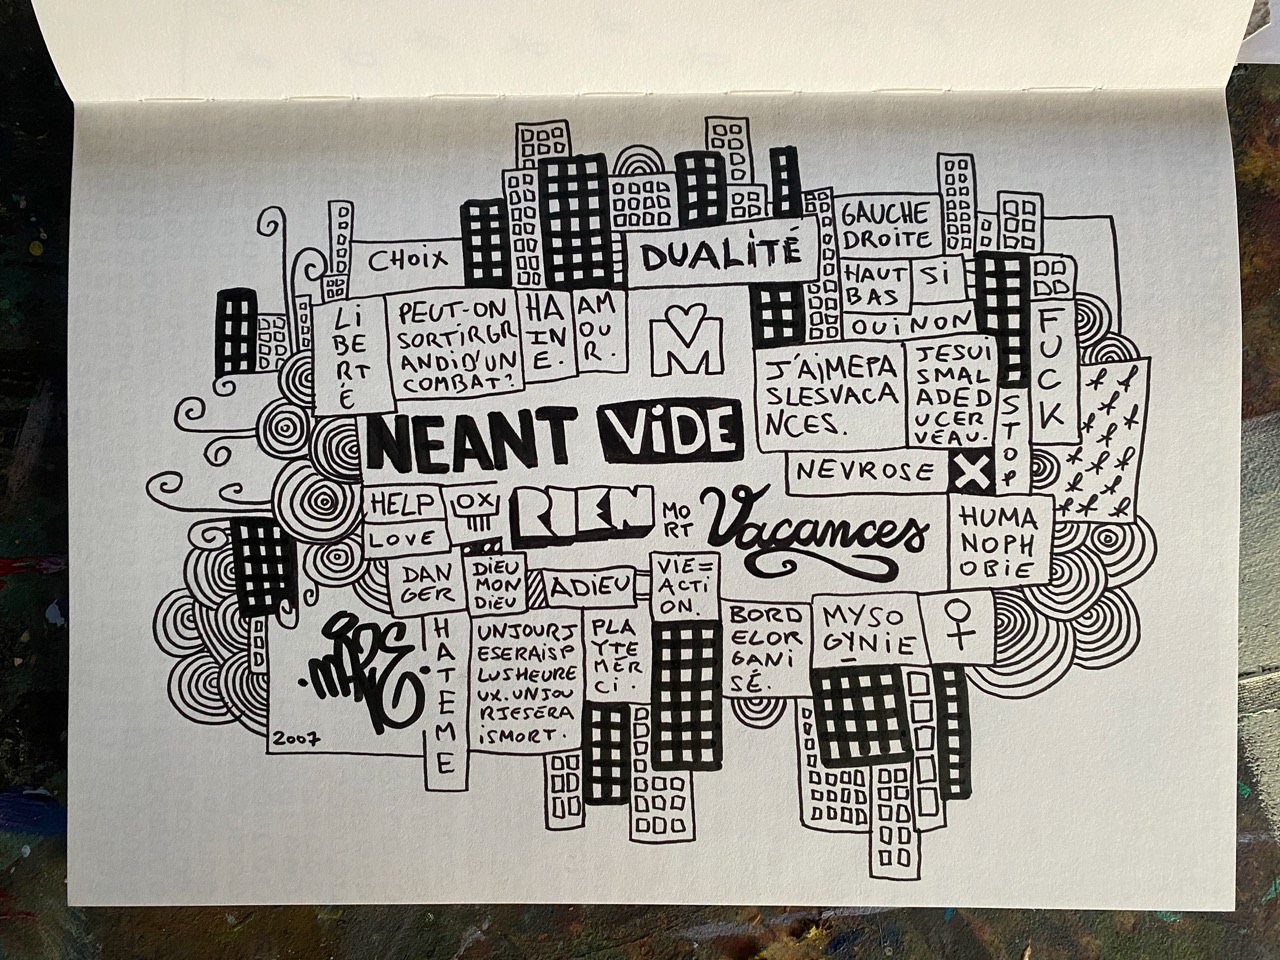 CHOIX
DUALITÉ
GAUCHE
DROITE
HAUT
BAS
SI
OUINON
LI
BE
RT
É
PEUT-ON
SORTIRGR
ANDID'UN
COMBAT?
HA
IN
E.
AM
OU
R.
M
J'AIMEPA
SLESVACA
NCES.
JESUI
SMAL
ADED
UCER
VEAU.
S
T
O
P
F
U
C
K
NEANT
VIDE
NEVROSE
X
HELP
OX
LOVE
RIEN
MO
RT
Vacances
HUMA
NOPH
OBIE
DAN
GER
DIEU
MON
DIEU
ADIEU
VIE=
ACTI
ON.
BORD
ELOR
GANI
SÉ.
MYSO
GYNIE
H
A
T
E
M
E
UNJOURJ
ESERAISP
LUSHEURE
UX.UNJOU
RJESERA
ISMORT.
PLA
YTE
MER
CI.
2007